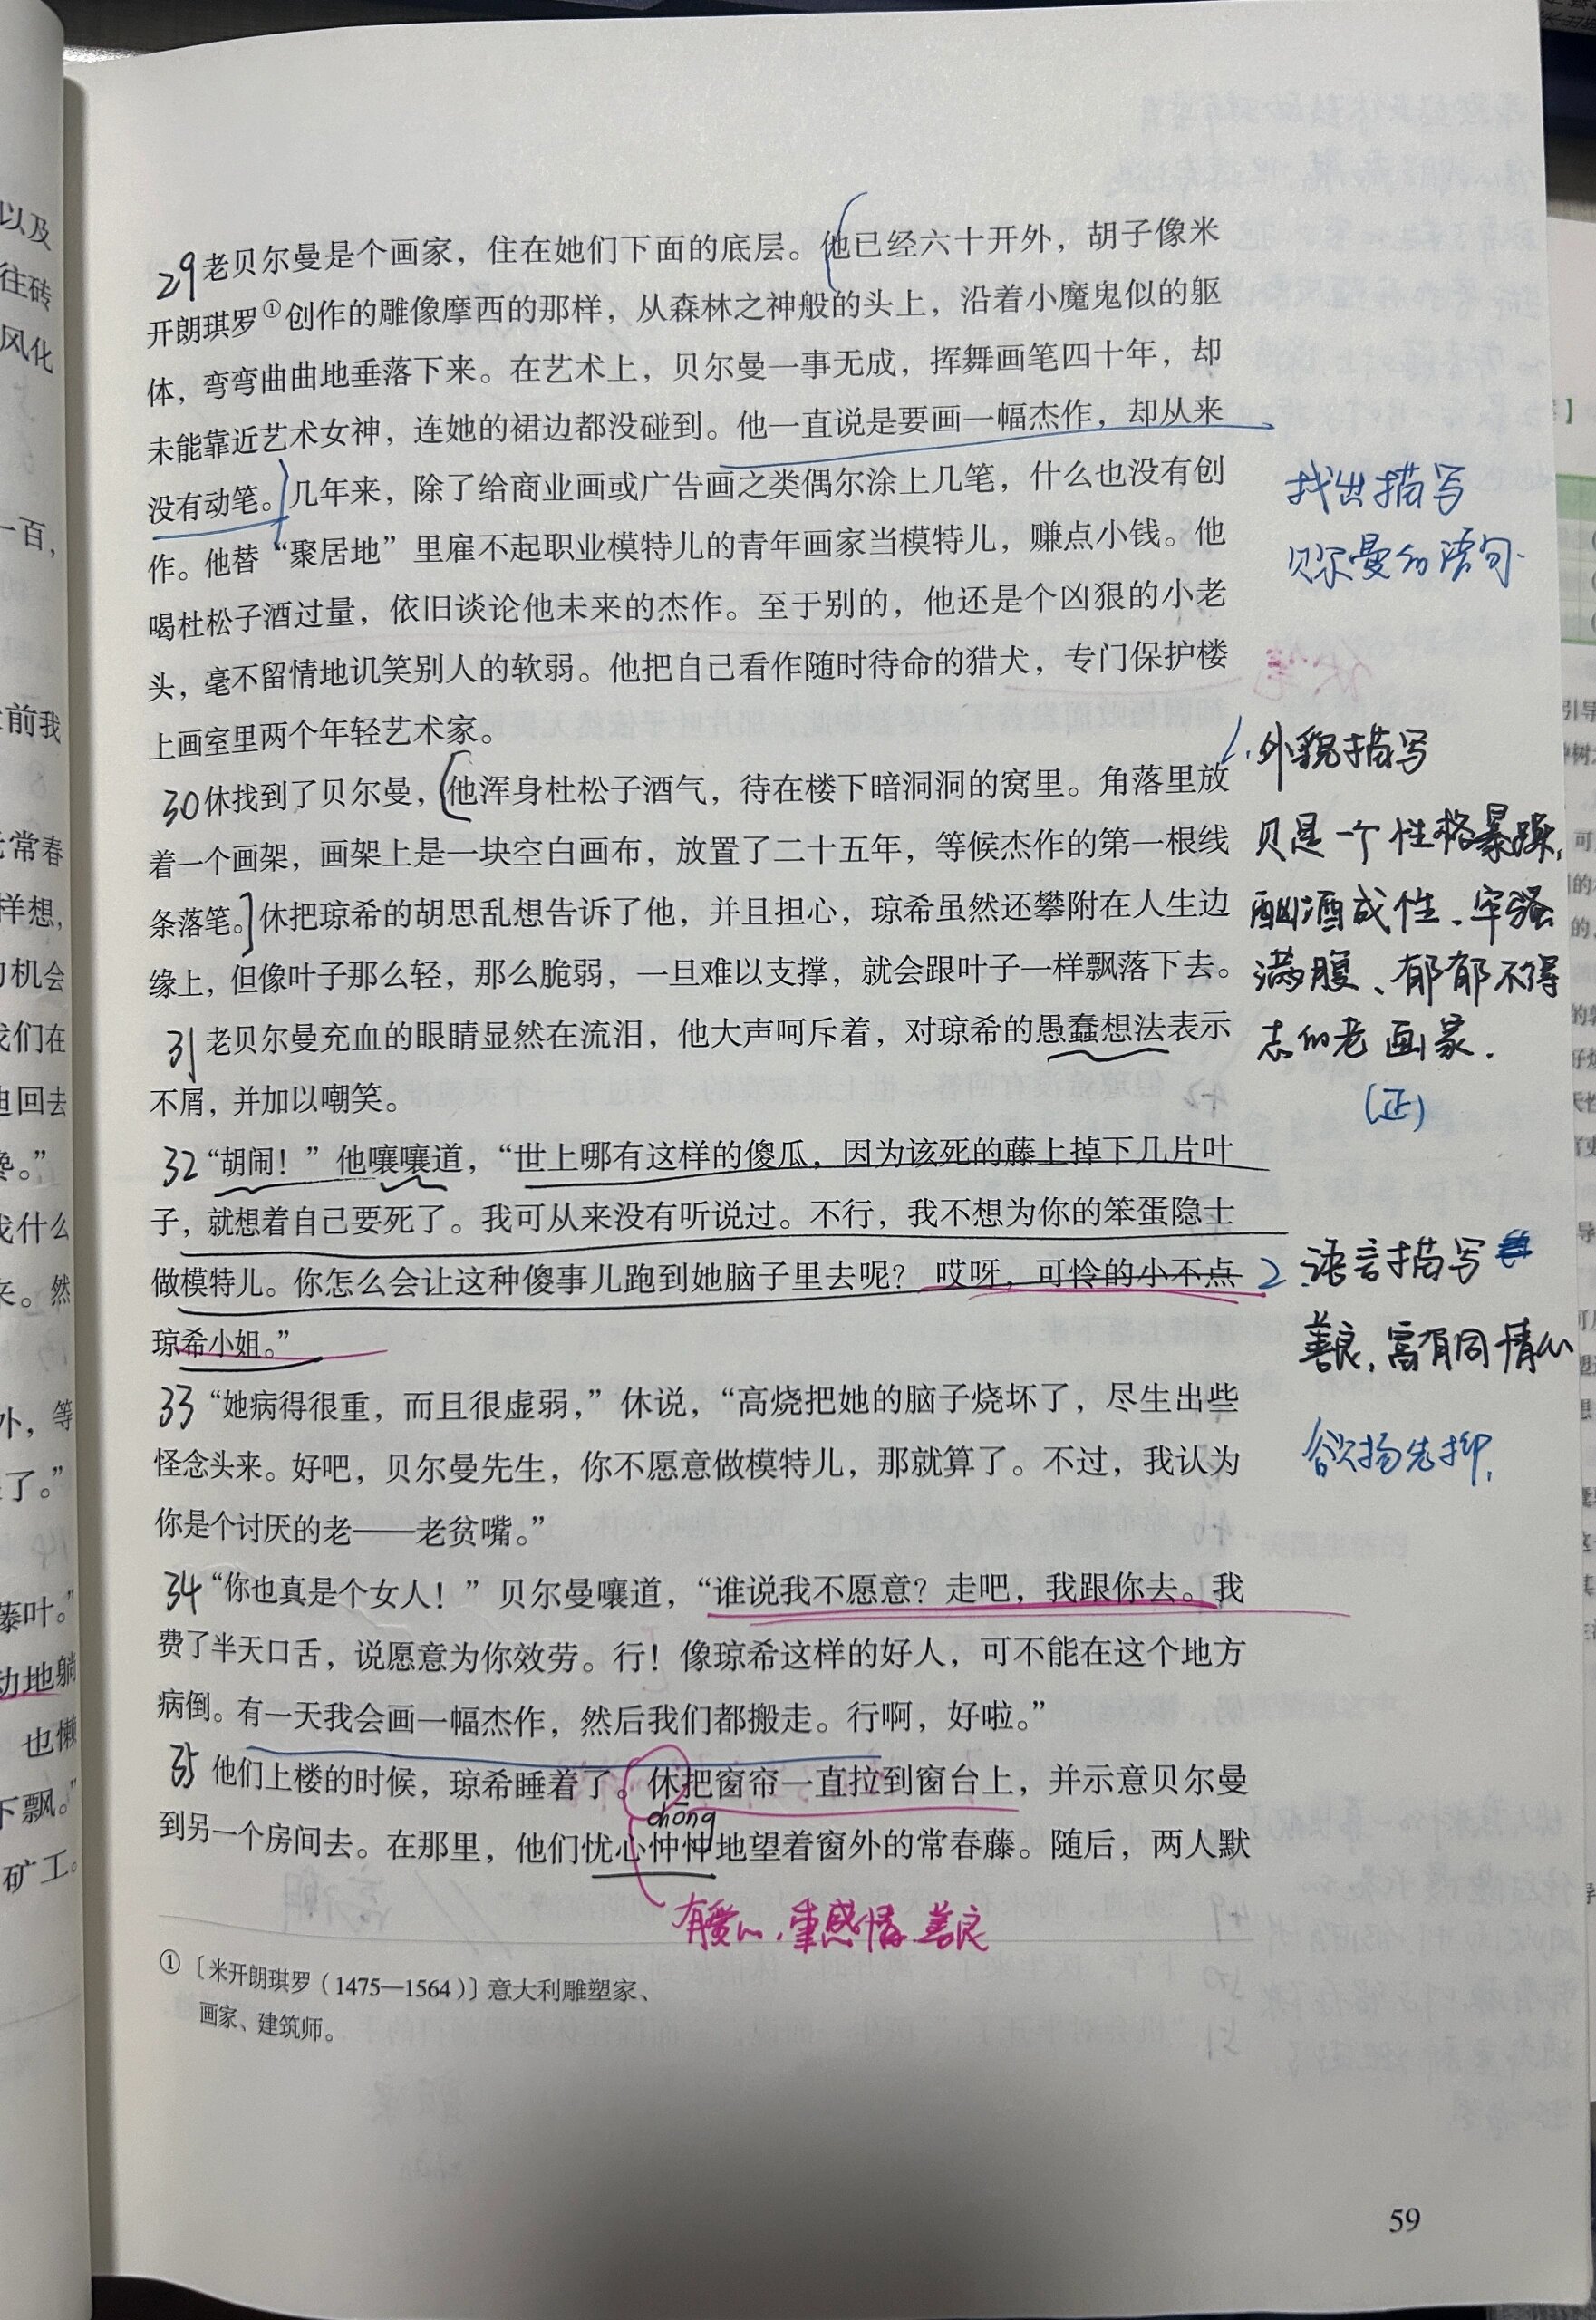 29老贝尔曼是个画家，住在她们下面的底层。他已经六十开外，胡子像米
开朗琪罗①创作的雕像摩西的那样，从森林之神般的头上，沿着小魔鬼似的躯
体，弯弯曲曲地垂落下来。在艺术上，贝尔曼一事无成，挥舞画笔四十年，却
未能靠近艺术女神，连她的裙边都没碰到。他一直说是要画一幅杰作，却从来
没有动笔。几年来，除了给商业画或广告画之类偶尔涂上几笔，什么也没有创
作。他替“聚居地”里雇不起职业模特儿的青年画家当模特儿，赚点小钱。他
喝杜松子酒过量，依旧谈论他未来的杰作。至于别的，他还是个凶狠的小老
头，毫不留情地讥笑别人的软弱。他把自己看作随时待命的猎犬，专门保护楼
上画室里两个年轻艺术家。
30休找到了贝尔曼，他浑身杜松子酒气，待在楼下暗洞洞的窝里。角落里放
着一个画架，画架上是一块空白画布，放置了二十五年，等候杰作的第一根线
条落笔。休把琼希的胡思乱想告诉了他，并且担心，琼希虽然还攀附在人生边
缘上，但像叶子那么轻，那么脆弱，一旦难以支撑，就会跟叶子一样飘落下去。
31老贝尔曼充血的眼睛显然在流泪，他大声呵斥着，对琼希的愚蠢想法表示
不屑，并加以嘲笑。
32“胡闹！”他嚷嚷道，“世上哪有这样的傻瓜，因为该死的藤上掉下几片叶
子，就想着自己要死了。我可从来没有听说过。不行，我不想为你的笨蛋隐士
做模特儿。你怎么会让这种傻事儿跑到她脑子里去呢？哎呀，可怜的小不点
琼希小姐。”
33“她病得很重，而且很虚弱，”休说，“高烧把她的脑子烧坏了，尽生出些
怪念头来。好吧，贝尔曼先生，你不愿意做模特儿，那就算了。不过，我认为
你是个讨厌的老——老贫嘴。”
34“你也真是个女人！”贝尔曼嚷道，“谁说我不愿意？走吧，我跟你去。我
费了半天口舌，说愿意为你效劳。行！像琼希这样的好人，可不能在这个地方
病倒。有一天我会画一幅杰作，然后我们都搬走。行啊，好啦。”
35他们上楼的时候，琼希睡着了。休把窗帘一直拉到窗台上，并示意贝尔曼
chōng
到另一个房间去。在那里，他们忧心忡忡地望着窗外的常春藤。随后，两人默
有爱心，重感情 善良
①〔米开朗琪罗（1475—1564）〕意大利雕塑家、
画家、建筑师。
59
找出描写
贝尔曼的语句.
1.外貌描写
贝是一个性格暴躁，
酗酒成性、牢骚
满腹、郁郁不得
志的老画家.
（正）
2.语言描写
善良，富有同情心
欲扬先抑.
以及
往砖
风化
一百，
前我
常春
样想，
机会
我们在
回去
什么
来。然
外，等
了。”
藤叶。”
动地躺
也懒
下飘。”
矿工。